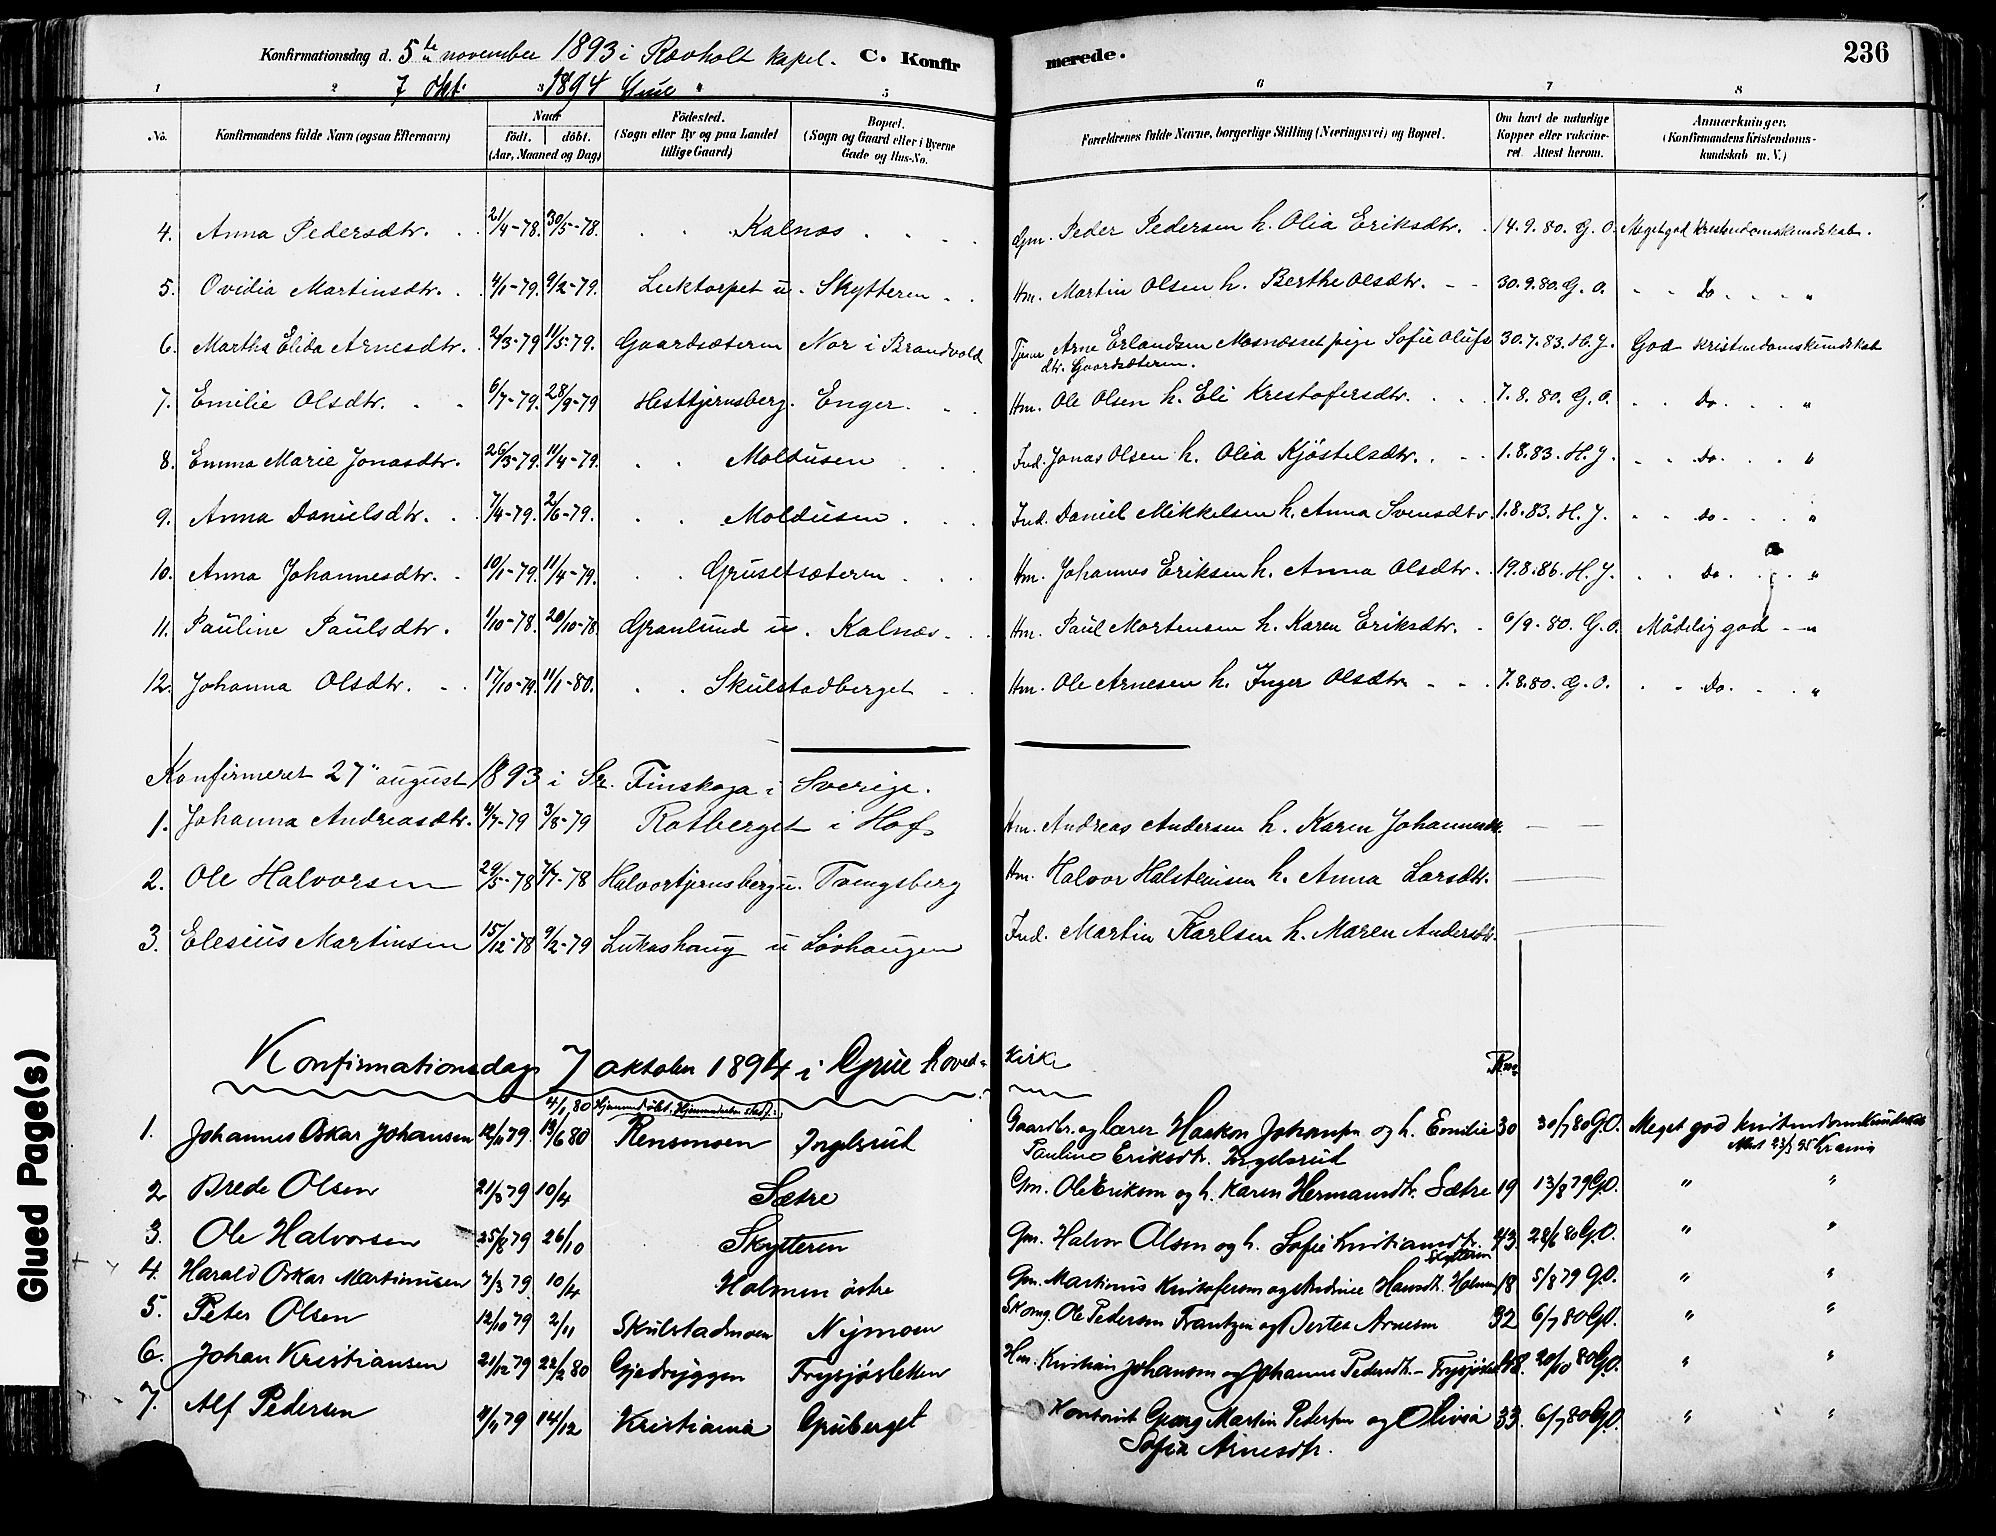 Konfirmationsdag d. 5te november 1893 i Revholt kapel. C. Konfir merede. 236
7 Okt. 1894 Grue "
1 2 3 5 6 7 8
No. Konfirmandens fulde Navn (ogsaa Efternavn) Naar födt. döbt. (Aar, Maaned og Dag) Födested. (Sogn eller By og paa Landet tillige Gaard) Bopæl. (Sogn og Gaard eller i Byerne Gade og Hus-No. Forældrenes fulde Navne, borgerlige Stilling (Næringsvei) og Bopæl. Om havt de naturlige Kopper eller vakcineret. Attest herom. Anmærkninger. (Konfirmandens Kristendomskundskab m. V.)
4. Anna Pedersdtr. 21/4-78. 30/5-78. Kalnæs Gm. Peder Pedersen h. Olia Eriksdtr. 14.9.80. G.O. Meget god kristendomskundskab.
5. Ovidia Martinsdtr. 4/1-79. 9/2-79. Lucktorpet u. Skytteren Hm. Martin Olsen h. Berthe Olsdtr. 30.9.80. G.O. Do. "
6. Martha Elida Arnesdtr. 2/3-79 11/5-79. Gaardsæteren Nor i Brandvold Tjener Arne Erlandsen Mosnæsset pige Sofie Olufs 30.7.83. H.J. God kristendomskundskab
dtr. Gaardsæteren.
7. Emilie Olsdtr. 6/7-79. 28/9-79 Hesttjernsberg. Enger. Hm. Ole Olsen h. Eli Krestofersdtr. 7.8.80. G.O. Do. "
8. Emma Marie Jonasdtr. 26/3-79. 11/4-79. Moldusen Ind. Jonas Olsen h. Olia Kjöstelsdtr. 1.8.83. H.J. Do. "
9. Anna Danielsdtr. 7/4-79. 2/6-79. Moldusen Ind. Daniel Mikkelsen h. Anna Svensdtr. 1.8.83. H.J. Do. "
10. Anna Johannesdtr. 10/1-79. 11/4-79. Grusetsæteren Hm. Johannes Eriksen h. Anna Olsdtr. 19.8.86. H.J. Do. "
11. Pauline Paulsdtr. 1/10-78. 20/10-78. Granlund u. Kalnæs. Hm. Paul Mortensen h. Karen Eriksdtr. 6/9-80. G.O. Mådelig god "
12. Johanna Olsdtr. 17/10-79. 11/1-80. Skulstadberget Hm. Ole Arnesen h. Inger Olsdtr. 7.8.80. G.O. Do. "
Konfirmeret 27" august 1893 i Finskoga i Sverige.
1. Johanna Andreasdtr. 4/7-79 3/8-79 Rotberget i Hof Hm. Andreas Andersen h. Karen Johannesdtr.
2. Ole Halvorsen 29/5-78 7/7-78 Halvortjernsberg u. Tvengsberg Hm. Halvor Halstensen h. Anna Larsdtr.
3. Elesius Martinsen 15/12-78 9/2-79 Lukashaug u Lövhaugen Ind. Martin Karlsen h. Maren Andersdtr.
Konfirmationsdag 7 oktober 1894 i Grue hovedkirke
4/1 80 Hjemmedöbt. stadf.:
1. Johannes Oskar Johansen 12/11 79 13/6 80 Rensmoen Ingelsrud Gaardbr. og lærer Haakon Johansen og h. Emilie 30 30/7 80 G.O. Meget god kristendomskundskab
Pauline Eriksdtr. Ingelsrud
2 Brede Olsen 21/3 79 10/4 Sætre Gm. Ole Eriksen og h. Karen Hermansdtr. Sætre 19 13/8 79 G.O. " "
3. Ole Halvorsen 25/8 79 26/10 Skytteren Gm. Halvor Olsen og h. Sofie Kristiansdtr. Skytteren 43. 28/6 80 G.O. " "
4. Harald Oskar Martinusen 7/3 79. 10/4 Holmen östre Gm. Martinus Kristofersen og Andrine Hansdtr. Holmen 18 5/8 79 G.O. " "
5. Peter Olsen 12/10 79 2/11 Skulstadmoen Nymoen Skomg. Ole Pedersen Frantzen og Bertea Arnesen 32 6/7 80 G.O. " "
6. Johan Kristiansen 21/12 79 22/2 80 Gjedryggen Frysjösletten Hm. Kristian Johansen og Johanne Pedersdtr. 20/10 80 G.O. " "
7. Alf Pedersen 11/11 79 14/12 Kristiania Gruberget Kontorist Georg Martin Pedersen og Olivia 33. 6/7 80 G.O. " "
Sofie Arnesdtr.
Glued Page(s)